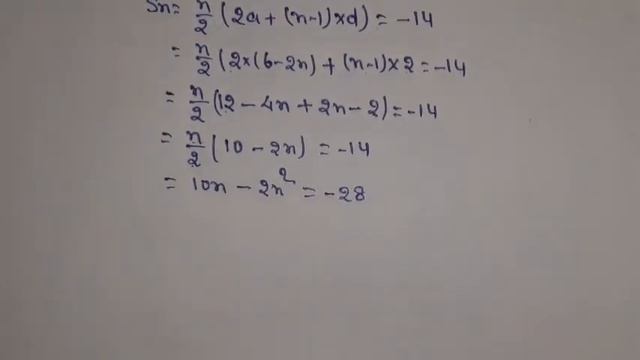 Sn = n/2 (2a + (n-1)×d) = -14
= n/2 (2×(6-2n) + (n-1)×2 = -14
= n/2 (12 - 4n + 2n - 2) = -14
= n/2 (10 - 2n) = -14
= 10n - 2n² = -28